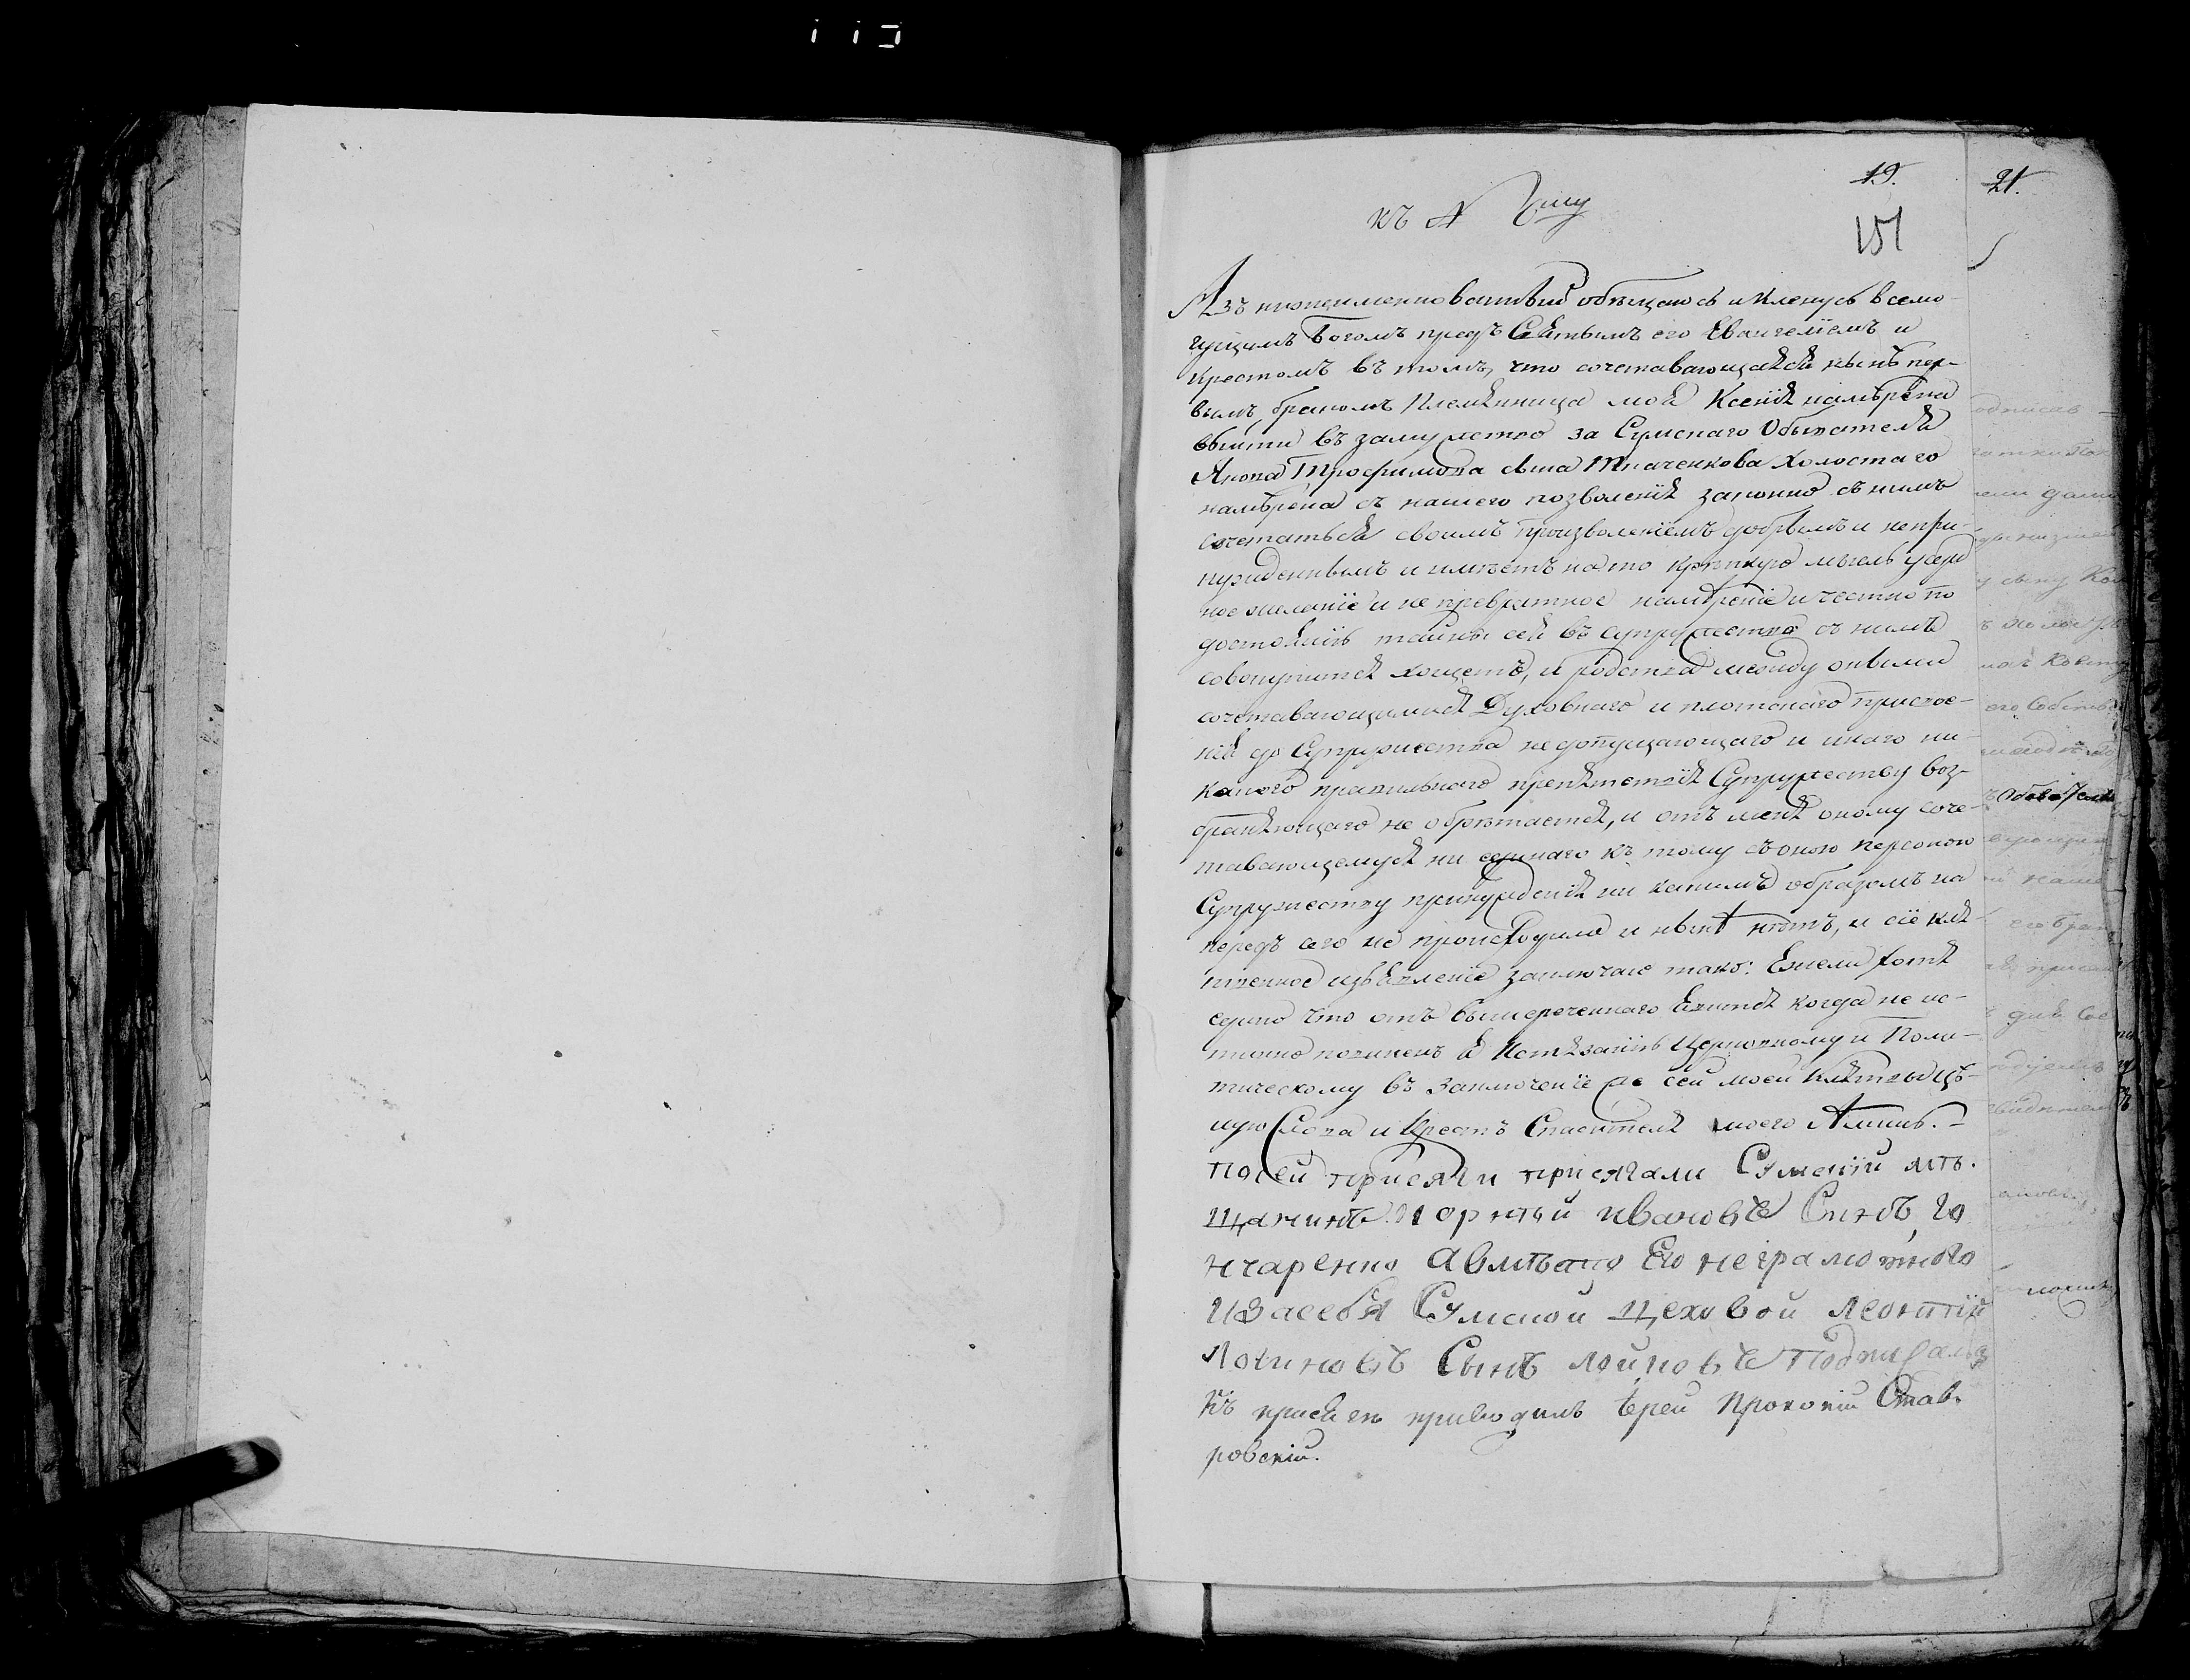 19.
21.
къ №
151
Азъ нижеименованный обещаюсь и кленусь всемо-
гущимъ Богомъ предъ Святымъ его Евангелїемъ и
Крестомъ въ томъ, что сочетавающаяся нынѣ пер-
вымъ бракомъ Племянница моя Ксенїя намѣрена
выйти въ замужство за Сумскаго Обывателя
Трофимова сына Ткаченкова холостаго
намѣрена съ нашего позволенїя законно съ нимъ
сочетаться своимъ произволенїемъ добрымъ и непри-
нужденнымъ и имѣетъ на то крѣпкую мысль усерд
ное желанїе и не превратное намѣренїе и честно по
достоянїю тайны сея въ супружество съ нимъ
совокупится хощетъ, и родства между оными
сочетавающимися Духовнаго и плотскаго присвое-
нїя до Супружества недопущающаго и инаго ни-
какого правильнаго препятствїя Супружеству воз-
браняющаго не обрѣтается, и отъ меня оному соче-
тавающемуся ни единаго къ тому съ оною персоною
Супружеству принужденїя ни какимъ образомъ на
передъ сего не происходило и нынѣ нѣтъ, и сїе кля-
твенное изъявленїе заключаю тако: Ежели хотя
едино что отъ вышереченнаго явится когда не ис-
тинно повиненъ я Истязанїю Церковному и Поли-
тическому въ Заключенїе же сей моей клятвы цѣ-
лую Слова и Крестъ Спасителя моего Аминь.
по сей присяги присягали Сумскїй мѣ-
щанинъ ивановъ Сынъ го
нчаренко авмѣсто Его неграмотного
изасебя Сумской цеховой леонтїй
логиновъ Сынъ подписалъ
Къ присягѣ приводилъ Іерей Прокопїй Став-
ровскїй.